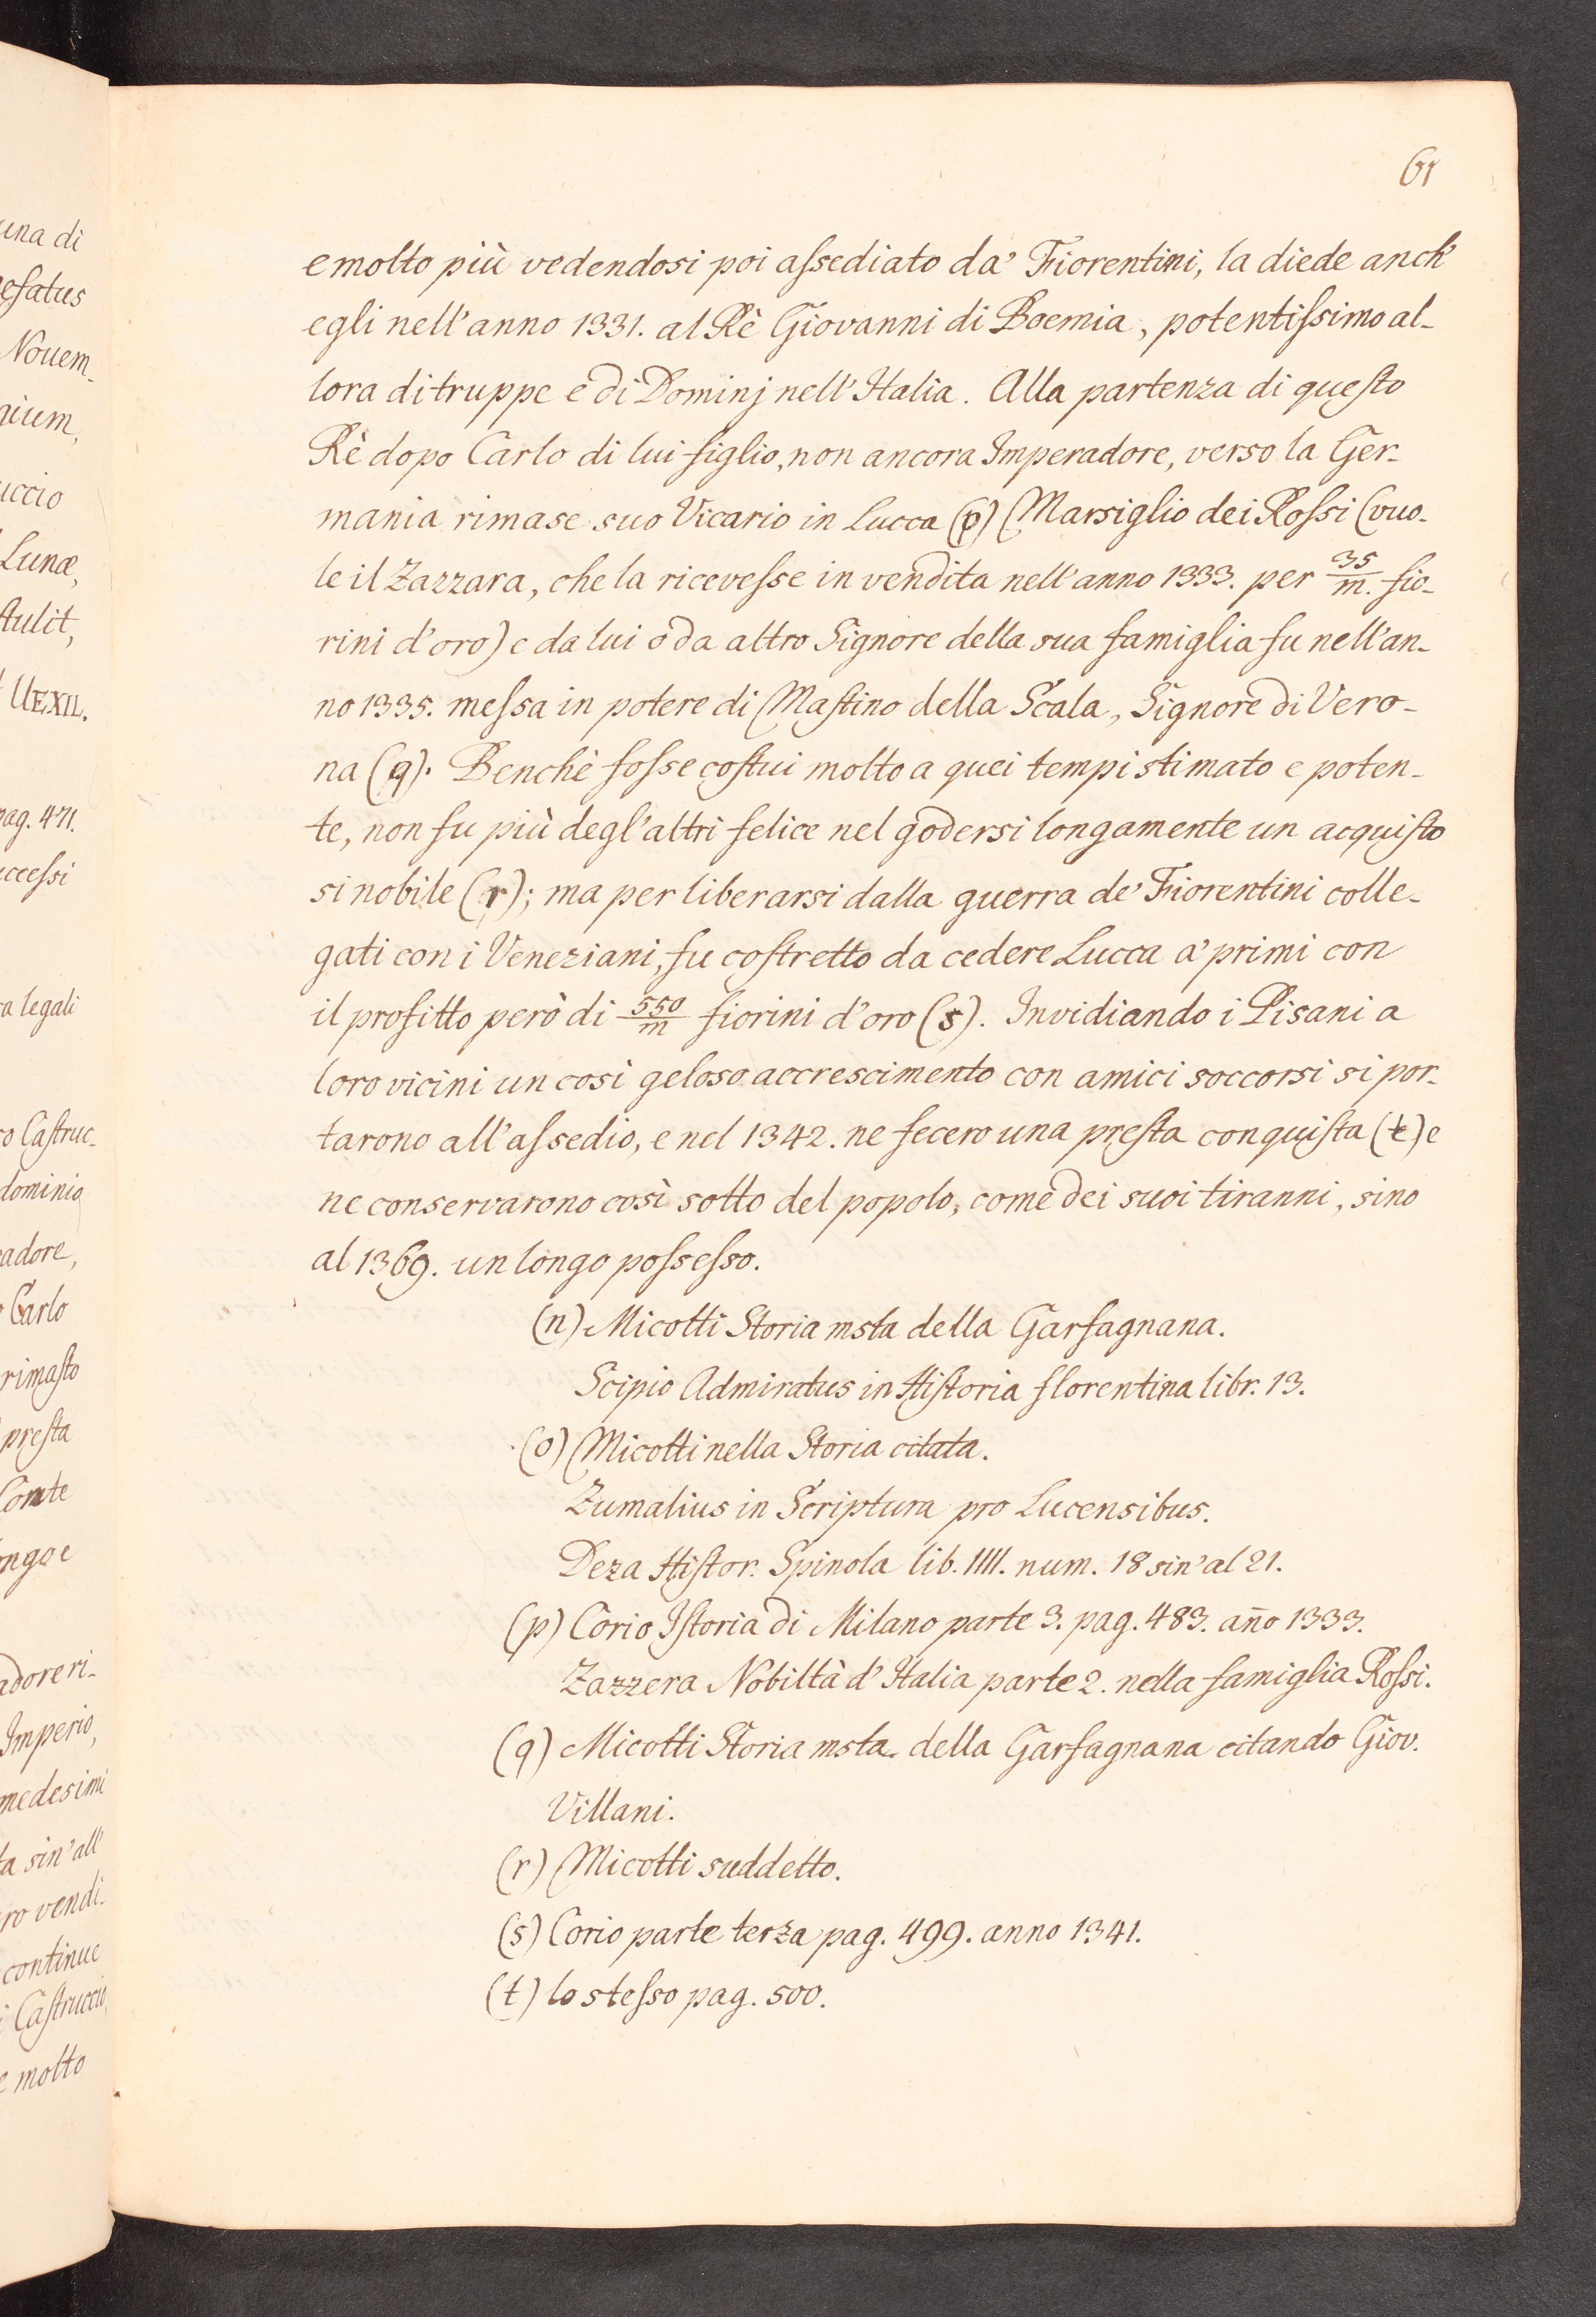 una di
efatus
Nouem-
nium,
uccio
Lunæ,
stulit,
UEXIL.
pag. 471.
uccessi
ra legali
ro Castruc-
dominio
radore,
Carlo
rimasto
presta
Conte
ongo e
adore ri-
Imperio,
medesimi
ta sin' all'
ro vendi-
continue
i Castruccio,
e molto
61
e molto più vedendosi poi assediato da' Fiorentini, la diede anch'
egli nell'anno 1331. al Rè Giovanni di Boemia, potentissimo al-
lora di truppe e di Dominj nell'Italia. Alla partenza di questo
Rè dopo Carlo di lui figlio, non ancora Imperadore, verso la Ger-
mania rimase suo Vicario in Lucca (p) Marsiglio dei Rossi (vuo-
le il Zazzara, che la ricevesse in vendita nell'anno 1333. per 35/m. fio-
rini d'oro) e da lui o da altro Signore della sua famiglia fu nell'an-
no 1335. messa in potere di Mastino della Scala, Signore di Vero-
na (q). Benchè fosse costui molto a quei tempi stimato e poten-
te, non fu più degl'altri felice nel godersi longamente un acquisto
si nobile (r); ma per liberarsi dalla guerra de' Fiorentini colle-
gati con i Veneziani, fu costretto da cedere Lucca a' primi con
il profitto però di 550/m fiorini d'oro (s). Invidiando i Pisani a
loro vicini un così geloso accrescimento con amici soccorsi si por-
tarono all'assedio, e nel 1342. ne fecero una presta conquista (t) e
ne conservarono così sotto del popolo, come dei suoi tiranni, sino
al 1369. un longo possesso.
(n) Micotti Storia msta della Garfagnana.
Scipio Admiratus in Historia florentina libr. 13.
(o) Micotti nella Storia citata.
Zumalius in Scriptura pro Lucensibus.
Deza Histor. Spinola lib. IIII. num. 18 sin' al 21.
(p) Corio Istoria di Milano parte 3. pag. 483. añо 1333.
Zazzera Nobiltà d'Italia parte 2. nella famiglia Rossi.
(q) Micotti Storia msta. della Garfagnana citando Giov.
Villani.
(r) Micotti suddetto.
(s) Corio parte terza pag. 499. anno 1341.
(t) lo stesso pag. 500.